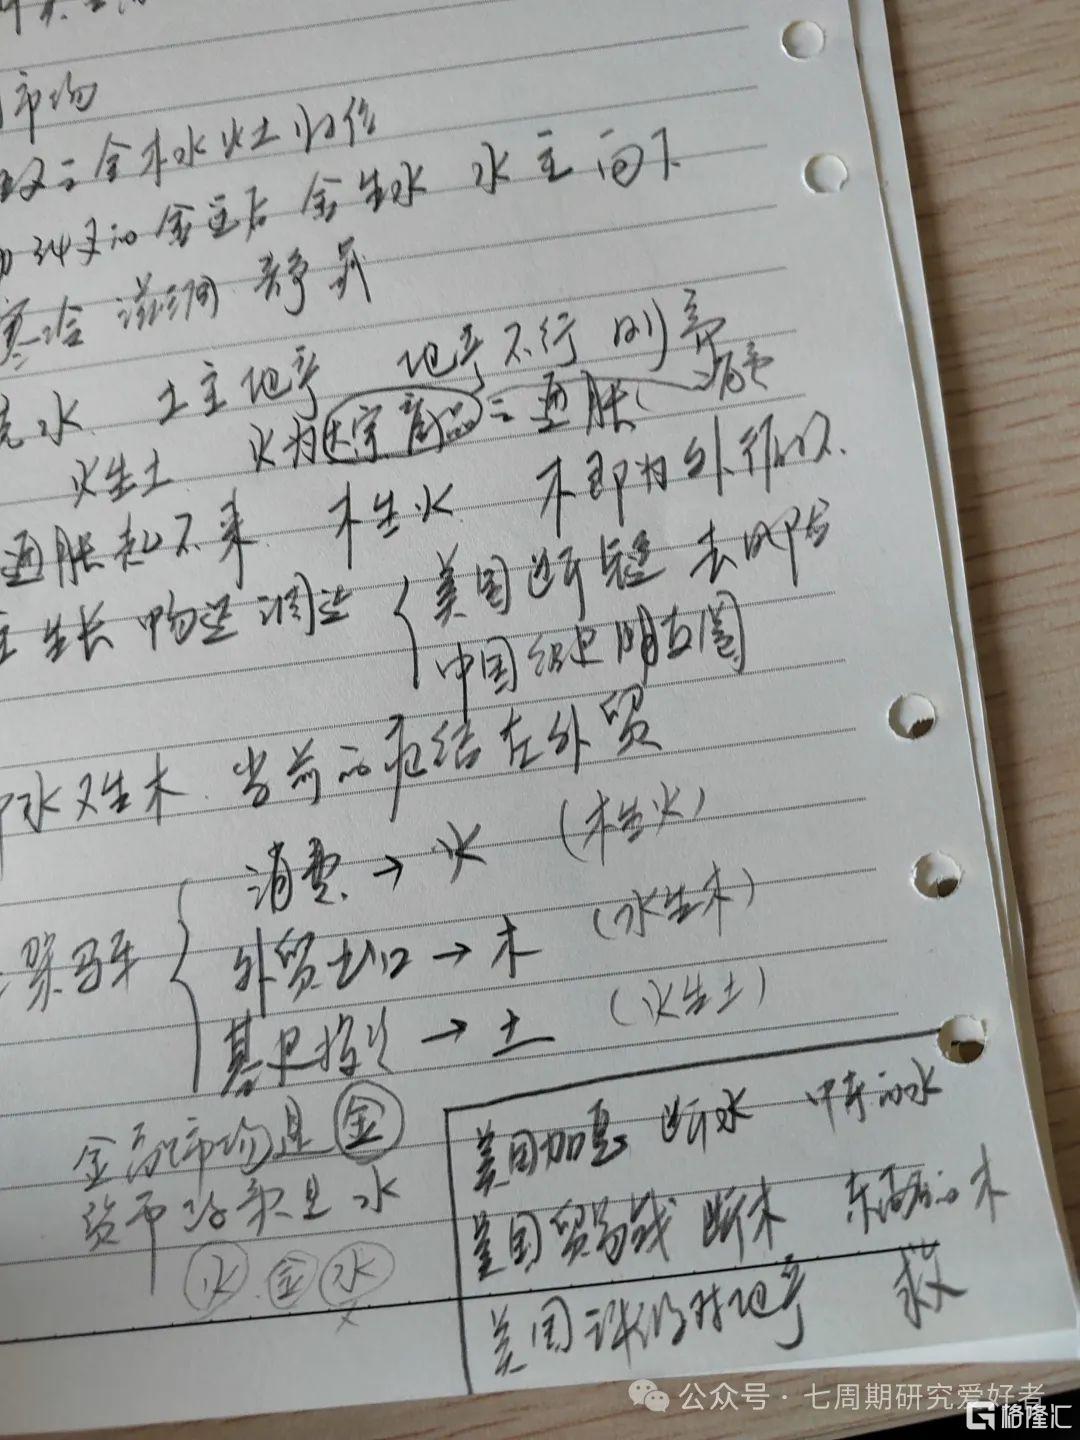 市场
金木水火土归位
金主后 金生水 水主向下
寒冷 滋润 静
水 土主地产 地产不行 则
火生土 火为大宗商品 = 通胀
通胀起不来 木生火 木即为外
生长 畅达 调达 美国断链 去
中国组建朋友圈
水又生木 当前的死结在外贸
消费 → 火 (木生火)
外贸出口 → 木 (水生木)
马车
基建投资 → 土 (火生土)
金融市场是 金
货币政策是 水
火 金 水
美国加息 断水 中东的水
美国贸易战 断木 的木
美国 地产 救
公众号 · 七周期研究爱好者
格隆汇